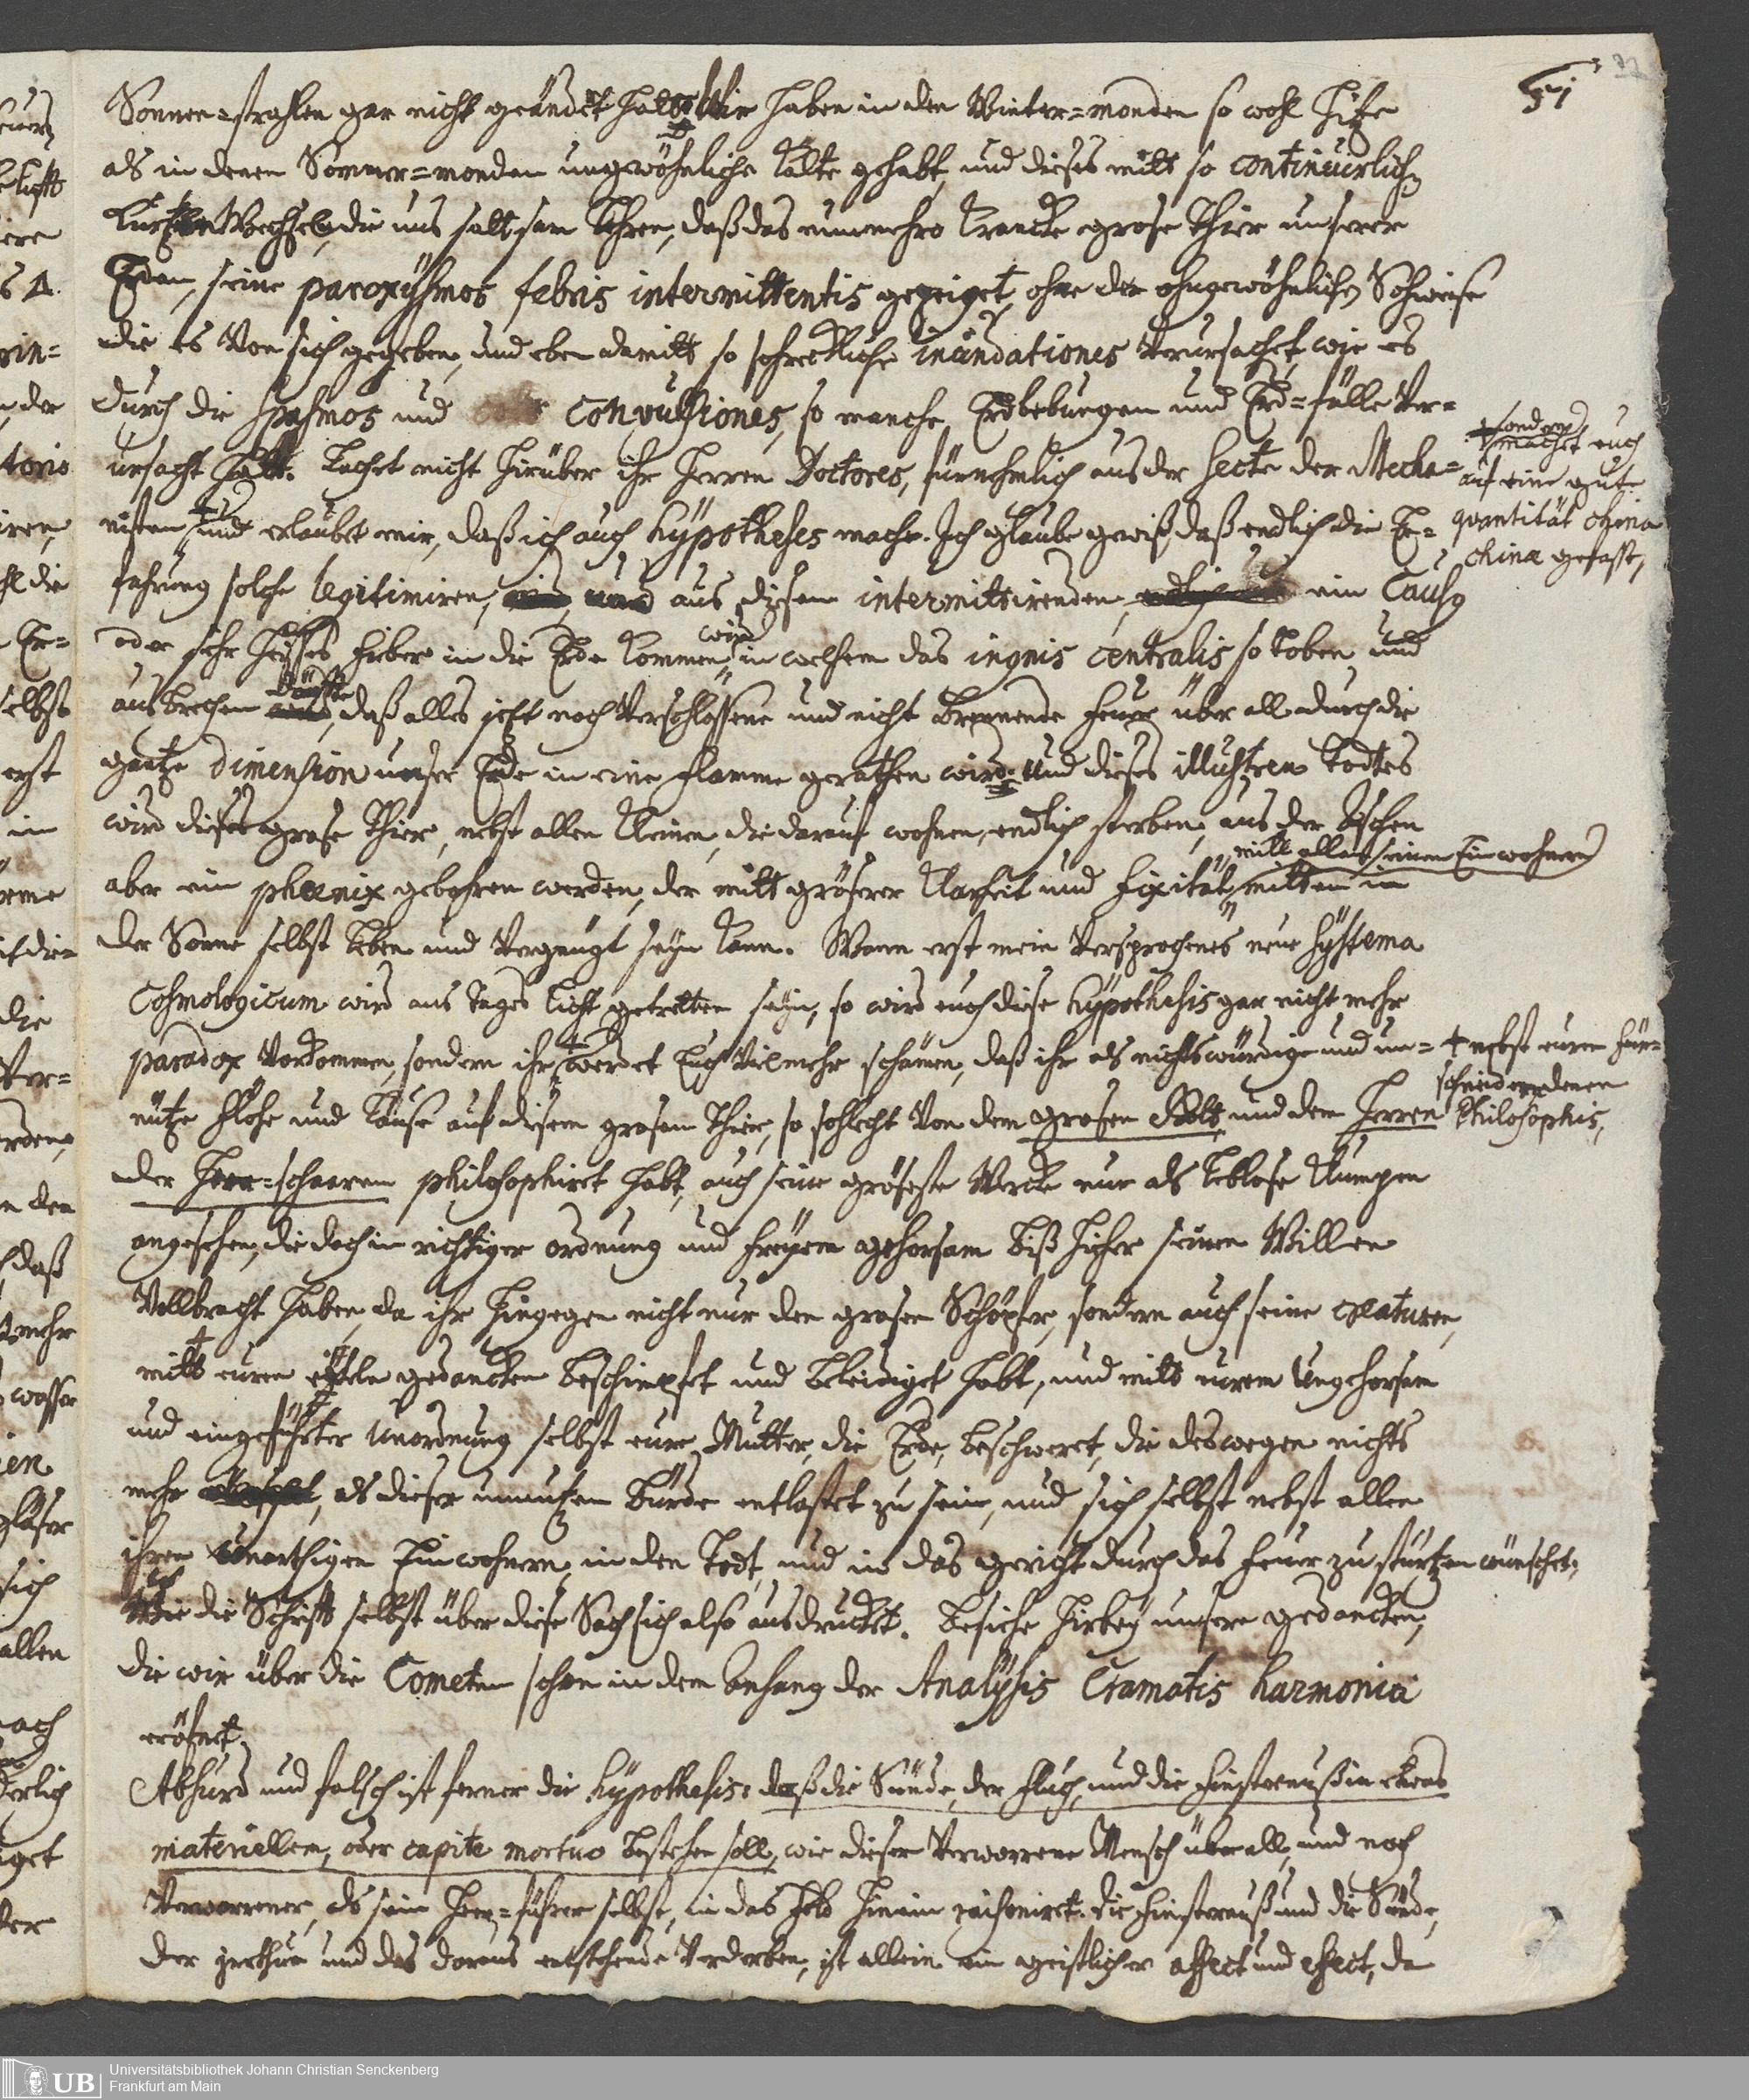 51
Sonnen-strahlen gar nicht geändert hat. Wir haben in den Winter-monden so wohl Hitze
als in denen Sommer-monden ungewöhnliche Kälte gehabt, und dieses mitt so continuirlich
Kurtzen Wechseln, die uns saltsam lehren, daß das nunmehro krancke grose Thier unserer
Erden, seine paroxÿsmos febris intermittentis gezeiget, ohne der ohngewöhnlichen Schweise
die es von sich gegeben, und eben damitt so schreckliche inundationes verursachet, wie es
durch die spasmos und convulsiones, so manche Erdbebungen und Erd-fälle ver-
ursacht hatt. Lachet nicht hirüber ihr Herren Doctores, fürnehmlich aus der Secte der Mecha-
nisten, und erlaubet mir, daß ich auch hÿpotheses mache. Ich glaube gewiß, daß endlich die Er-
+ sondern
machet euch
auf eine gute
quantität china
china gefasst,
fahrung solche legitimiren, aus diesem intermittirenden, ein Causus
oder sehr heisses Fieber in die Erde kommen wird, in welchem das ignis centralis so toben und
ausbrechen dörffte, daß alles jetzt noch verschlossene und nicht brennende Feuer über all durch die
gantze dimension unser Erde in eine Flamme gerathen wird. Und dieses illustren Todtes
wird dieses grose Thier, nebst allen kleinen, die darauf wohnen, endlich sterben, aus der Aschen
mitt allen seinen Einwohnern
aber ein phœnix gebohren werden, der mitt gröserer Klarheit und Fixität, mitten in
der Sonne selbst leben und vergnügt seÿn kann. Wann erst mein versprochenes neue Sÿstema
Cosmologicum wird ans Tages licht getretten seÿn, so wird euch diese hÿpothesis gar nicht mehr
paradox vorkommen, sondern ihr + werdet Euch vielmehr schämen, daß ihr als nichtswürdige und un-
+ nebst euren
Philosophis,
nütze Flöhe und Läuse auf diesem grosen Thier, so schlecht von dem grosen Gott, und dem Herren
der Heer-schaaren philosophiret habt, auch seine gröseste Wercke nur als leblose Klumpen
angesehen, die doch in richtiger ordnung und freÿem gehorsam biß hieher seinen Willen
vollbracht haben, da ihr hingegen nicht nur den grosen Schöpfer, sondern auch seine creaturen,
mitt euren eiteln gedancken beschimpfet und beleidiget habt, und mitt eurem Ungehorsam
und eingeführter Unordnung selbst eure Mutter, die Erde, beschweret, die deswegen nichts
mehr, als dieser unnutzen Bürde entlastet zu sein, und sich selbst nebst allen
ihren unarthigen Einwohnern, in den Todt, und in das gericht durch das Feuer zu stürtzen wünschet,
Wie die Schrift selbst über diese Sach sich also ausdrucket. Besiehe hirbeÿ unsere gedancken,
die wir über die Cometen schon in dem Anhang der Analÿsis Cramatis harmonici
eröfnet.
Absurd und falsch ist ferner die hÿpothesis: daß die Sünde, der Fluch, und die Finsternuß in etwas
materiellen, oder capite mortuo bestehen soll, wie dieser verworrene Mensch über all, und noch
verworrener, als sein Heer-führer selbst, in das Feld hinein raisoniret. Die Finsternuß und die Sünde,
der Irrthum und das daraus entstehende Verderben, ist allein ein geistlicher affect und effect, da
Universitätsbibliothek Johann Christian Senckenberg
Frankfurt am Main
UB